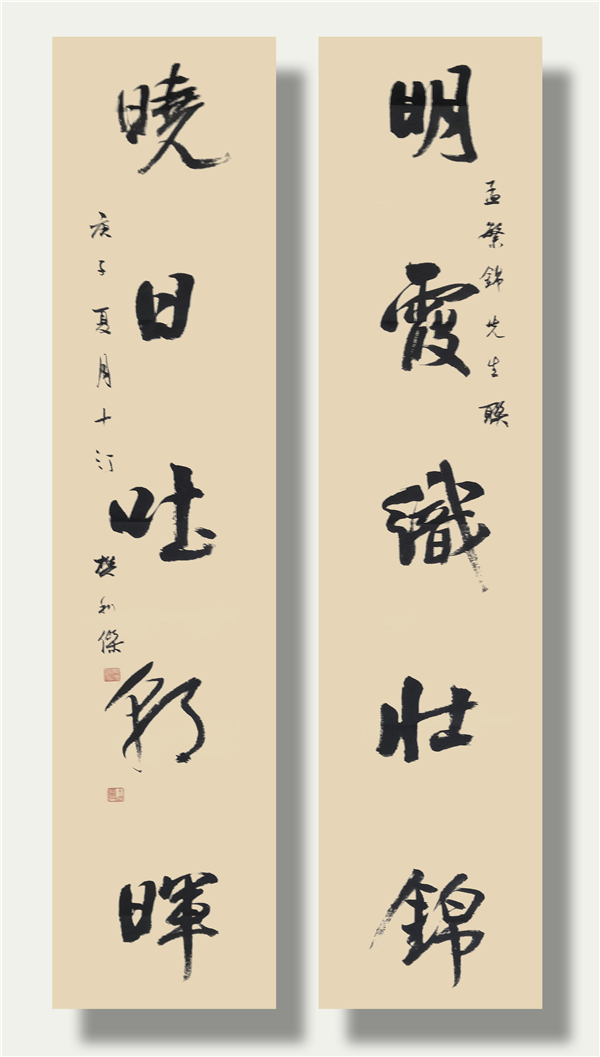 明霞織壯錦
孟繁錦先生聯
曉日吐朝暉
庚子夏月十汀
樊利傑